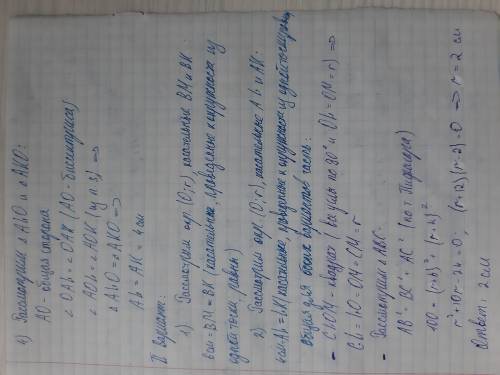 4) Рассмотрим ΔAbO и ΔAKO:
AO - общая сторона
∠OAb = ∠OAK (AO - биссектриса)
∠AOb = ∠AOK (у п.3) ⇒
ΔAbO = ΔAKO ⇒
Ab = AK = 4 см
II Вариант:
1) Рассмотрим окр. (O; r), касательные BM и BK:
6 см = BM = BK (касательные, проведенные к окружности из
одной точки, равны)
2) Рассмотрим окр. (O; r), касательные Ab и AK:
4 см Ab = bK (касательные, проведенные к окружности из одной точки, равны)
общая для обоих вариантов часть:
- CbOM - квадрат (все углы по 90° и Ob = OM = r) ⇒
Cb = bO = OM = CM = r
- Рассмотрим ΔABC:
AB² = BC² + AC² (по т. Пифагора)
100 = (r+6)² + (r+4)²
r² + 10r - 24 = 0; (r+12)(r-2) = 0 ⇒ r = 2 см
Ответ: 2 см